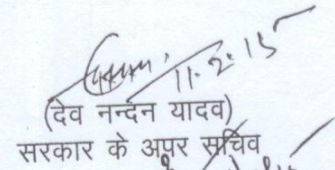 11.2.15
(देव नन्दन यादव)
सरकार के अपर सचिव